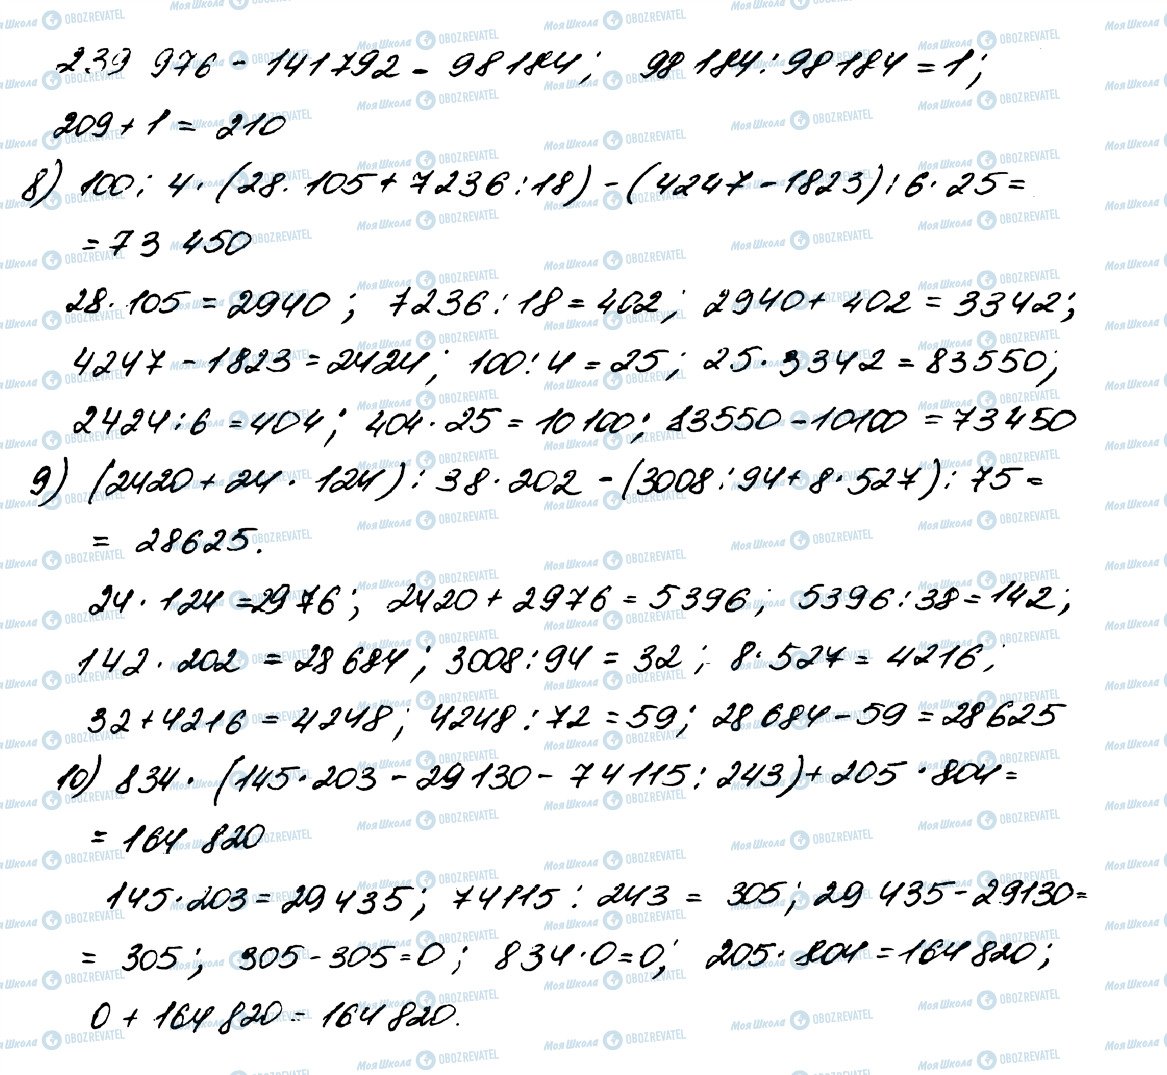 239 976 - 141792 = 98184; 98 184 : 98 184 = 1;
209 + 1 = 210
8) 100 : 4 · (28 · 105 + 7236 : 18) - (4247 - 1823) : 6 · 25 =
= 73 450
28 · 105 = 2940; 7236 : 18 = 402; 2940 + 402 = 3342;
4247 - 1823 = 2424; 100 : 4 = 25; 25 · 3342 = 83550;
2424 : 6 = 404; 404 · 25 = 10100; 83550 - 10100 = 73450
9) (2420 + 24 · 124) : 38 · 202 - (3008 : 94 + 8 · 527) : 75 =
= 28625.
24 · 124 = 2976; 2420 + 2976 = 5396; 5396 : 38 = 142;
142 · 202 = 28 684; 3008 : 94 = 32; 8 · 527 = 4216;
32 + 4216 = 4248; 4248 : 72 = 59; 28 684 - 59 = 28625
10) 834 · (145 · 203 - 29 130 - 74 115 : 243) + 205 · 804 =
= 164 820
145 · 203 = 29 435; 74115 : 243 = 305; 29 435 - 29130 =
= 305; 305 - 305 = 0; 834 · 0 = 0; 205 · 804 = 164 820;
0 + 164 820 = 164 820.
МояШкола OBOZREVATEL